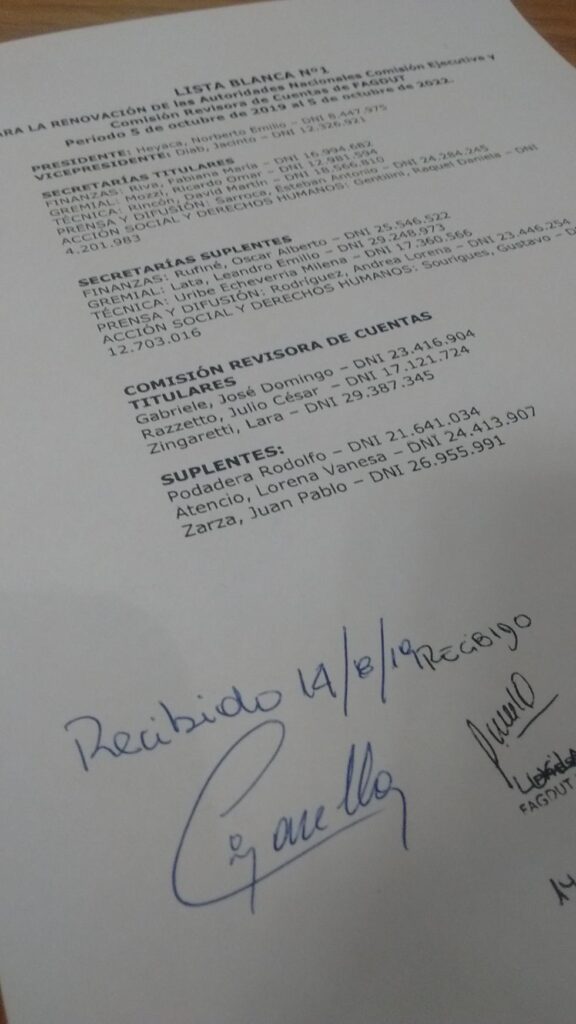 LISTA BLANCA Nº1
ARA LA RENOVACIÓN DE las Autoridades Nacionales Comisión Ejecutiva y
Comisión Revisora de Cuentas de FAGDUT
Período 5 de octubre de 2019 al 5 de octubre de 2022.
PRESIDENTE: Heyaca, Norberto Emilio – DNI 8.447.975
VICEPRESIDENTE: Diab, Jacinto – DNI 12.326.921
SECRETARÍAS TITULARES
FINANZAS: Riva, Fabiana María – DNI 16.994.682
GREMIAL: Mozzi, Ricardo Omar – DNI 12.981.594
TÉCNICA: Rincón, David Martín – DNI 18.566.810
PRENSA Y DIFUSIÓN: Sarroca, Esteban Antonio – DNI 24.284.245
ACCIÓN SOCIAL Y DERECHOS HUMANOS: Gentilini, Raquel Daniela – DNI
4.201.983
SECRETARÍAS SUPLENTES
FINANZAS: Rufiné, Oscar Alberto – DNI 25.546.522
GREMIAL: Lata, Leandro Emilio – DNI 29.248.973
TÉCNICA: Uribe Echeverria Milena – DNI 17.360.566
PRENSA Y DIFUSIÓN: Rodríguez, Andrea Lorena – DNI 23.446.254
ACCIÓN SOCIAL Y DERECHOS HUMANOS: Sourigues, Gustavo – D
12.703.016
COMISIÓN REVISORA DE CUENTAS
TITULARES
Gabriele, José Domingo – DNI 23.416.904
Razzetto, Julio César – DNI 17.121.724
Zingaretti, Lara – DNI 29.387.345
SUPLENTES:
Podadera Rodolfo – DNI 21.641.034
Atencio, Lorena Vanesa – DNI 24.413.907
Zarza, Juan Pablo – DNI 26.955.991
Recibido 14/8/19 RECIBIDO
FAGDUT
14